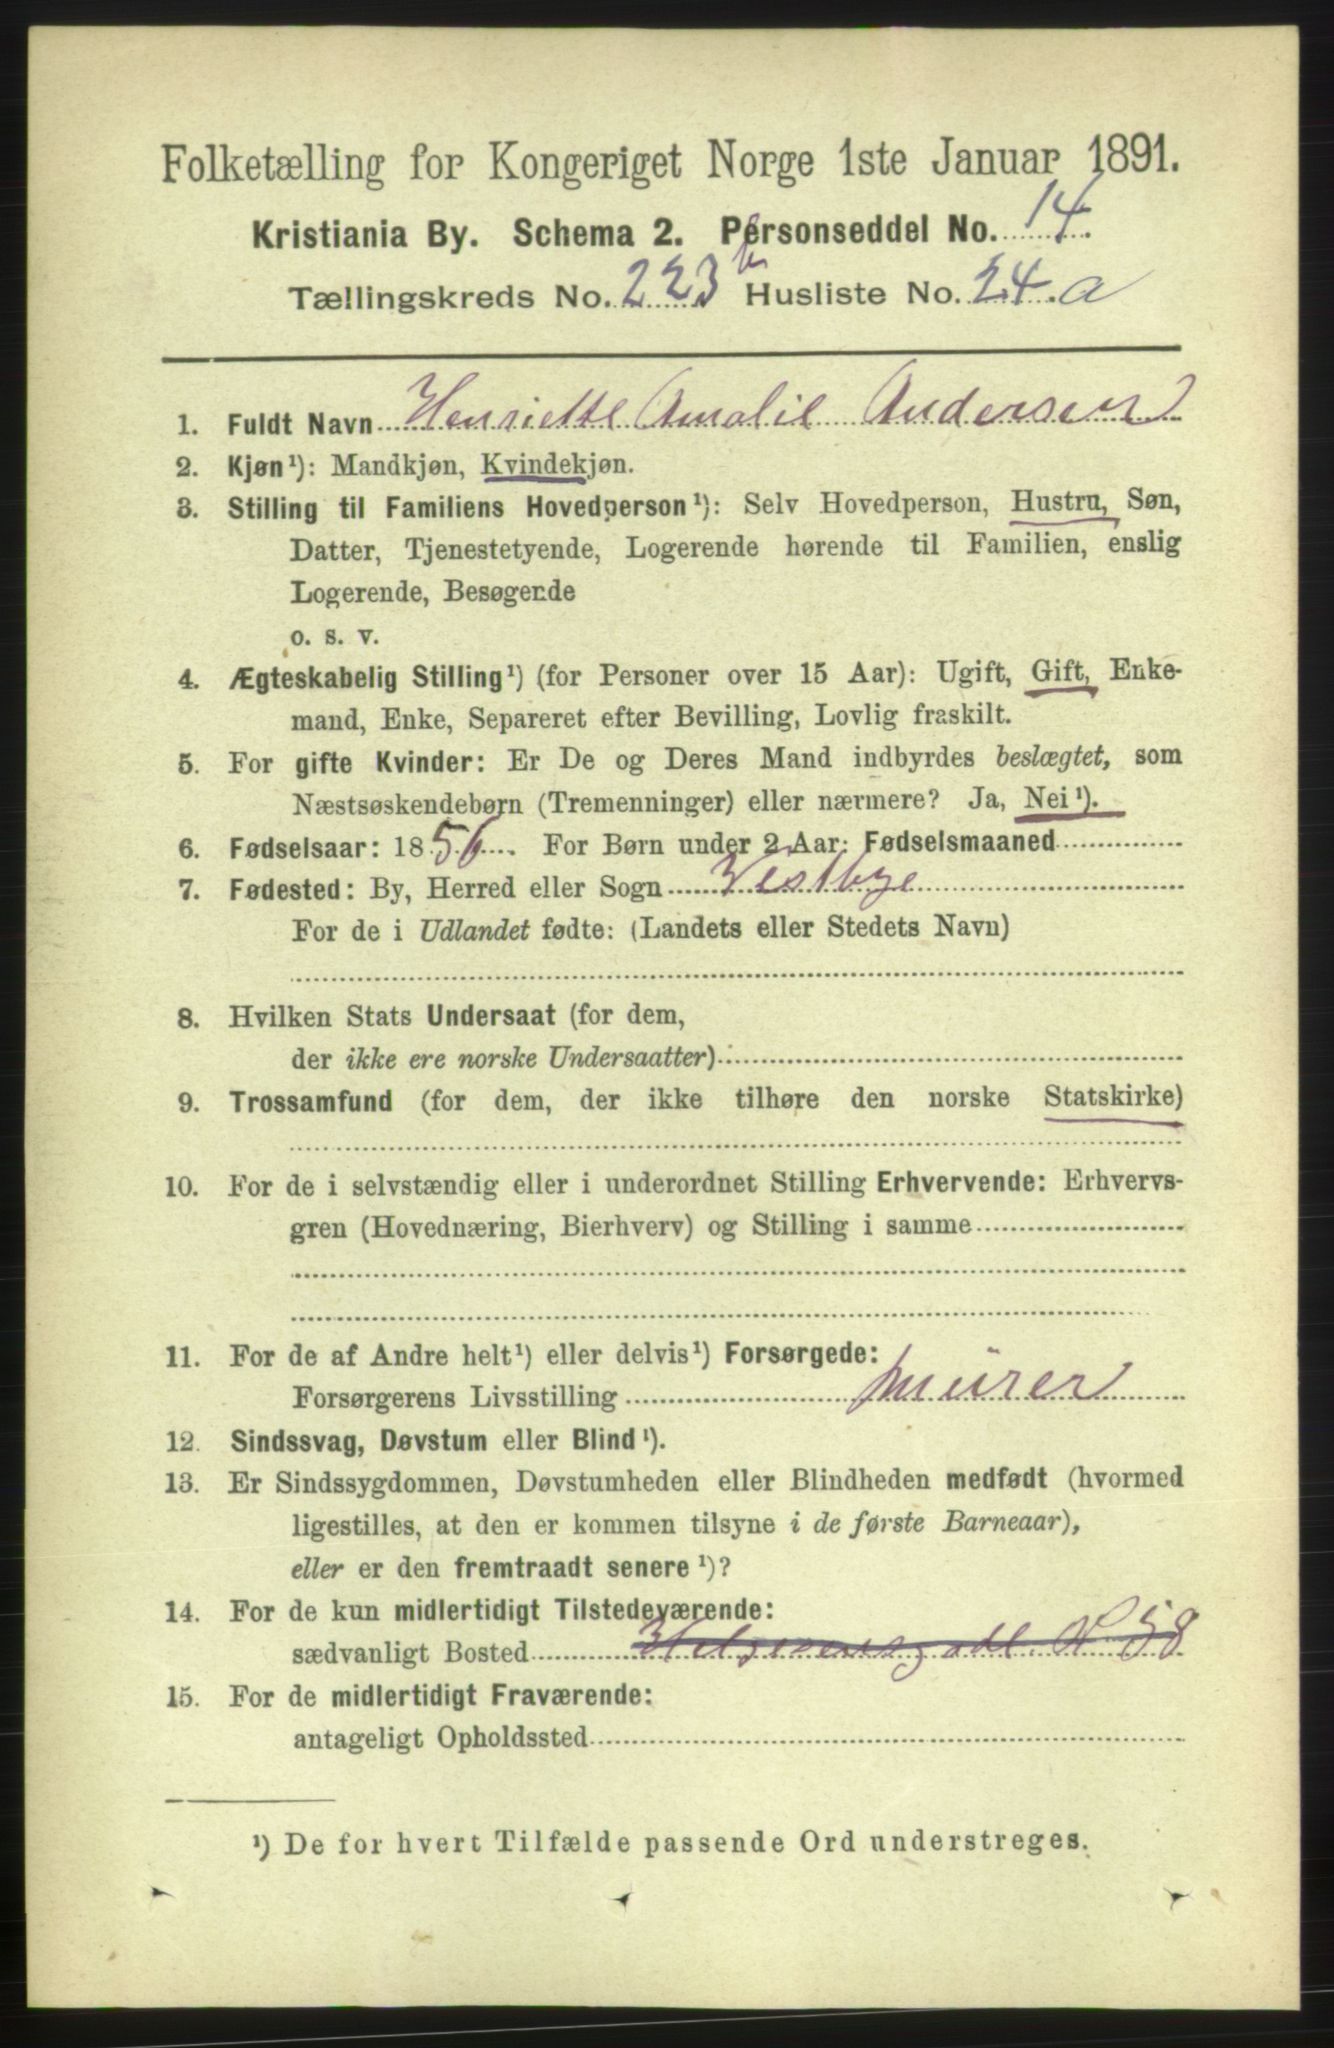 Folketælling for Kongeriget Norge 1ste Januar 1891.
Kristiania By. Schema 2. Personseddel No. 14.
Tællingskreds No. 223 b Husliste No. 24 a
1. Fuldt Navn Henriette Amalie Andersen
2. Kjøn¹): Mandkjøn, Kvindekjøn.
3. Stilling til Familiens Hovedperson¹): Selv Hovedperson, Hustru, Søn,
Datter, Tjenestetyende, Logerende hørende til Familien, enslig
Logerende, Besøgende
o. s. v.
4. Ægteskabelig Stilling¹) (for Personer over 15 Aar): Ugift, Gift, Enke-
mand, Enke, Separeret efter Bevilling, Lovlig fraskilt.
5. For gifte Kvinder: Er De og Deres Mand indbyrdes beslægtet, som
Næstsøskendebørn (Tremenninger) eller nærmere? Ja, Nei¹).
6. Fødselsaar: 1856. For Børn under 2 Aar: Fødselsmaaned
7. Fødested: By, Herred eller Sogn Vestbye
For de i Udlandet fødte: (Landets eller Stedets Navn)
8. Hvilken Stats Undersaat (for dem,
der ikke ere norske Undersaatter)
9. Trossamfund (for dem, der ikke tilhøre den norske Statskirke)
10. For de i selvstændig eller i underordnet Stilling Erhvervende: Erhvervs-
gren (Hovednæring, Bierhverv) og Stilling i samme
11. For de af Andre helt¹) eller delvis¹) Forsørgede:
Forsørgerens Livsstilling Mürer
12. Sindssvag, Døvstum eller Blind¹).
13. Er Sindssygdommen, Døvstumheden eller Blindheden medfødt (hvormed
ligestilles, at den er kommen tilsyne i de første Barneaar),
eller er den fremtraadt senere¹)?
14. For de kun midlertidigt Tilstedeværende:
sædvanligt Bosted N 58
15. For de midlertidigt Fraværende:
antageligt Opholdssted
¹) De for hvert Tilfælde passende Ord understreges.